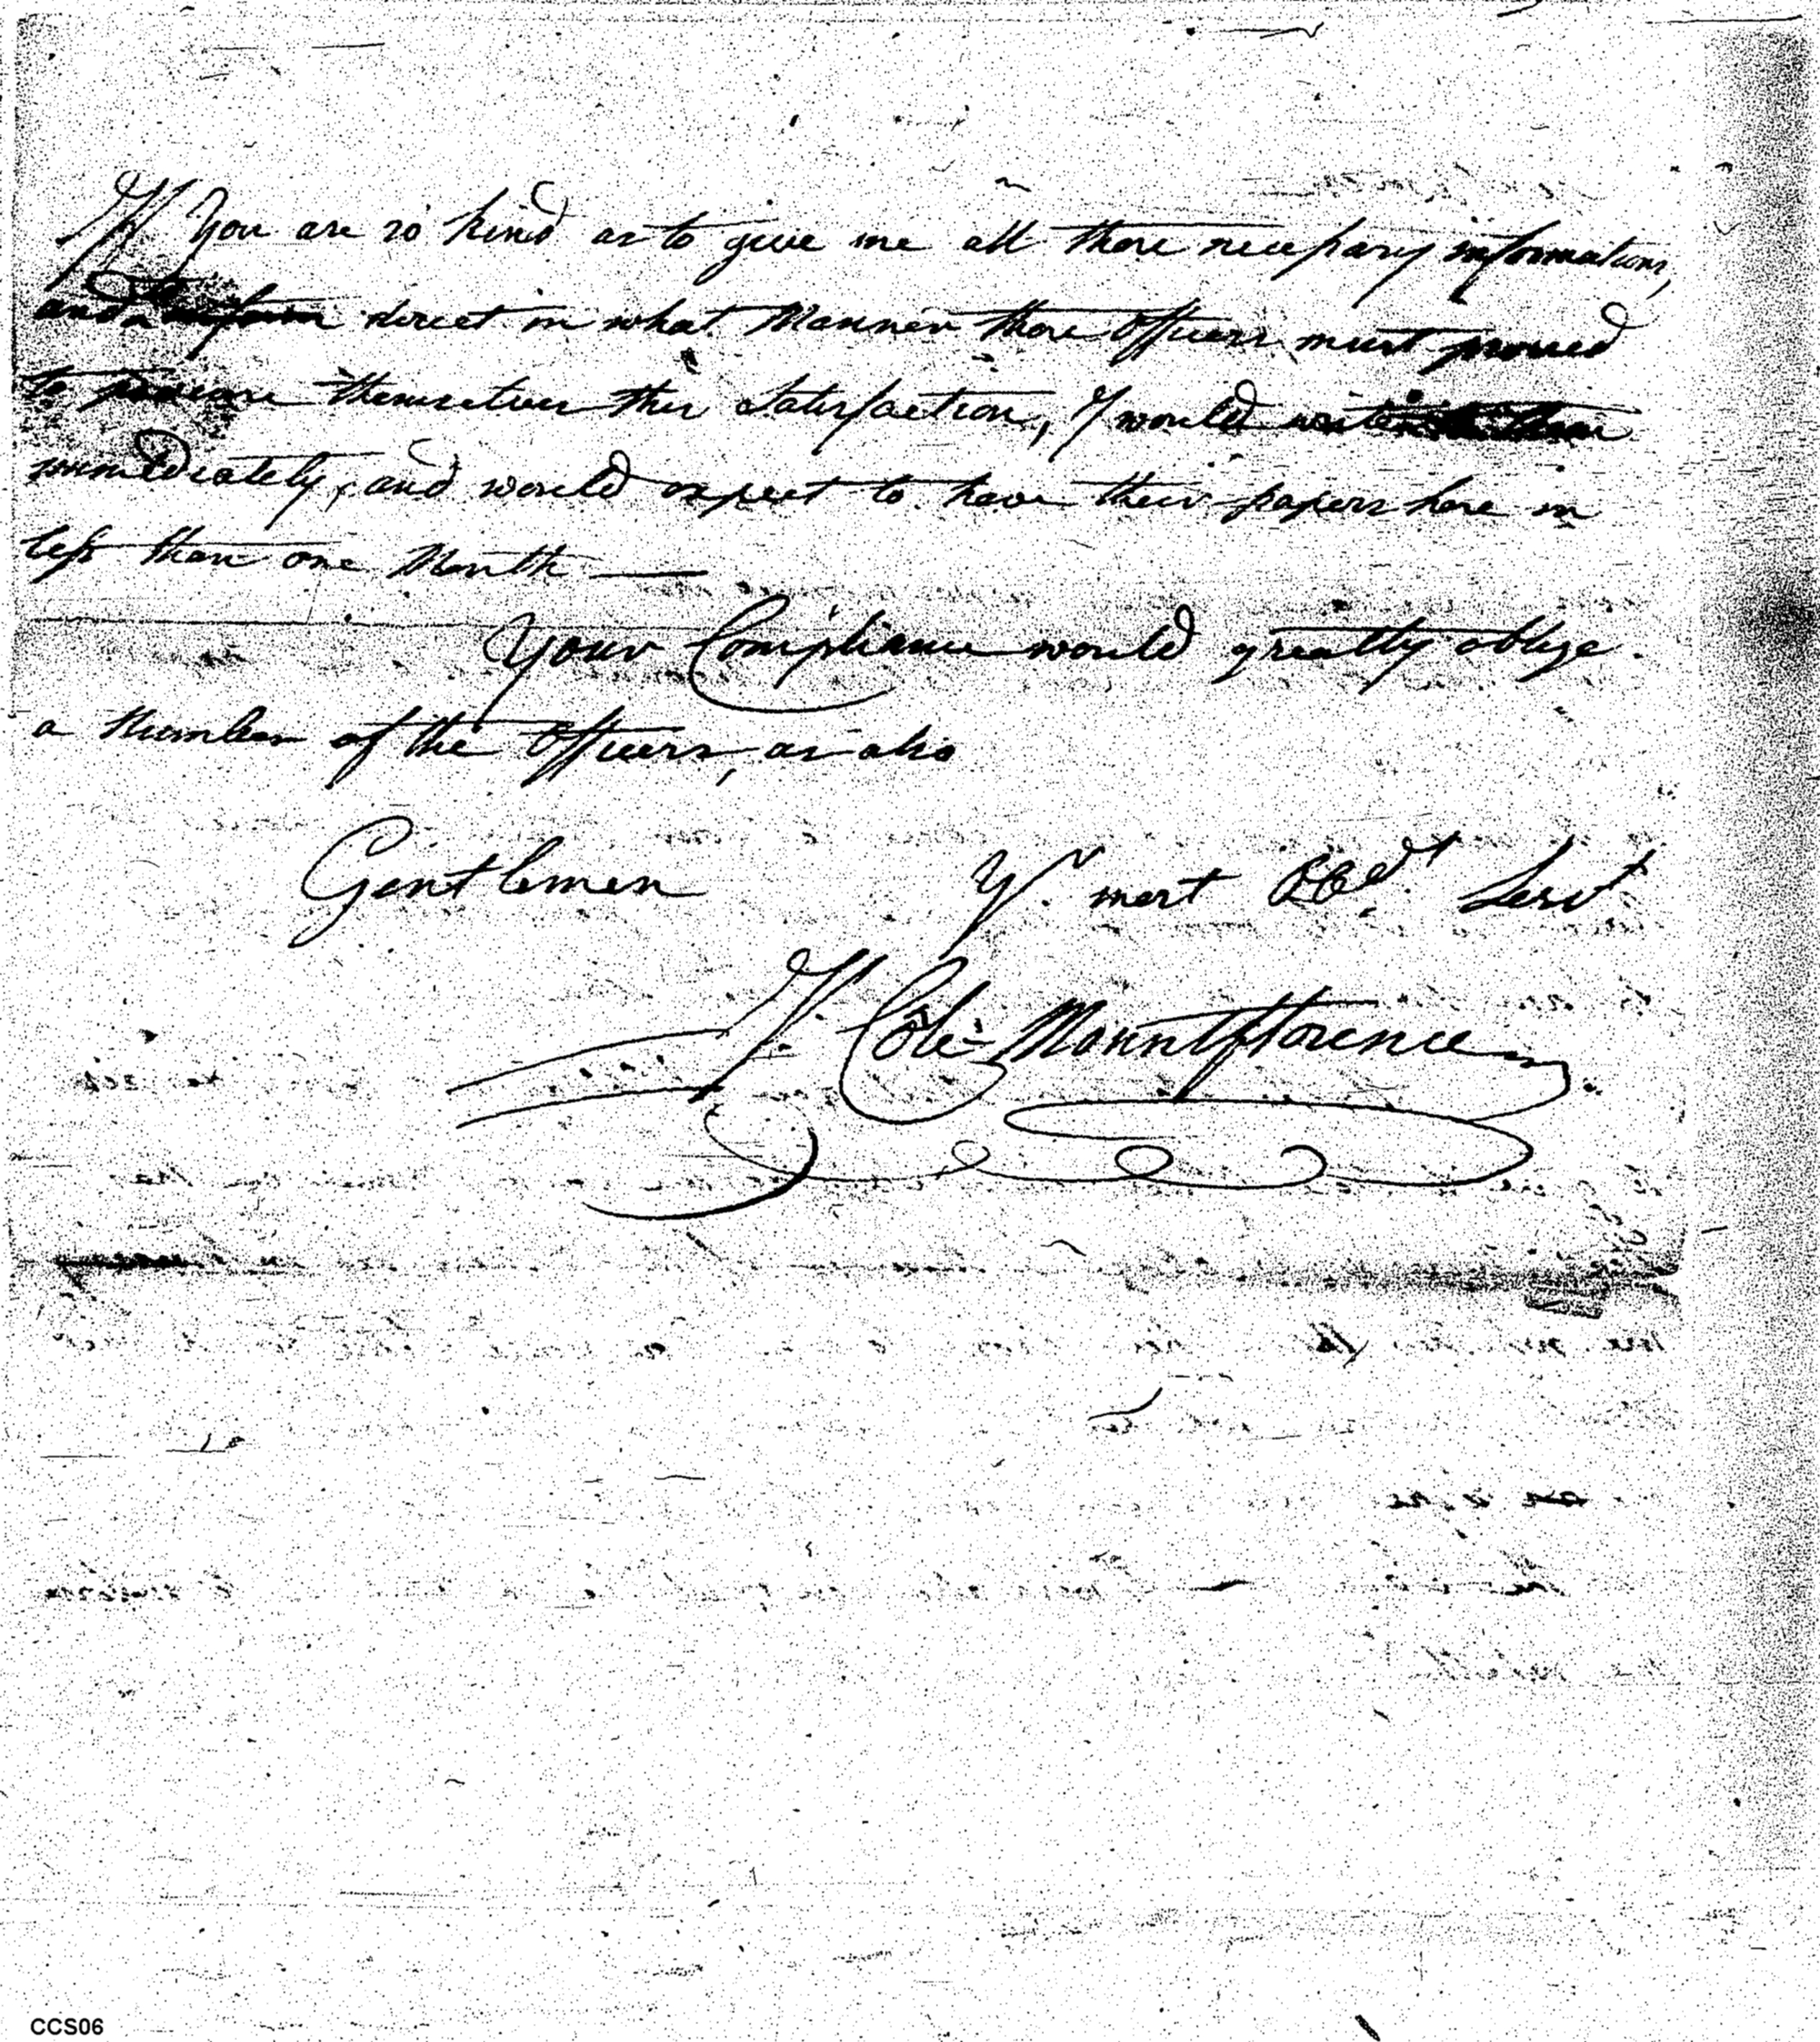 If You are so kind as to give me all those necessary informations,
and direct in what Manner those Officers must proceed
to procure themselves this Satisfaction, I would write
immediately, and would expect to have their papers here in
less than one Month —
Your Compliance would greatly oblige
a Number of the Officers, as also
Gentlemen Yr. most Obdt. Servt
J. Cole Mountflorence
CCS06